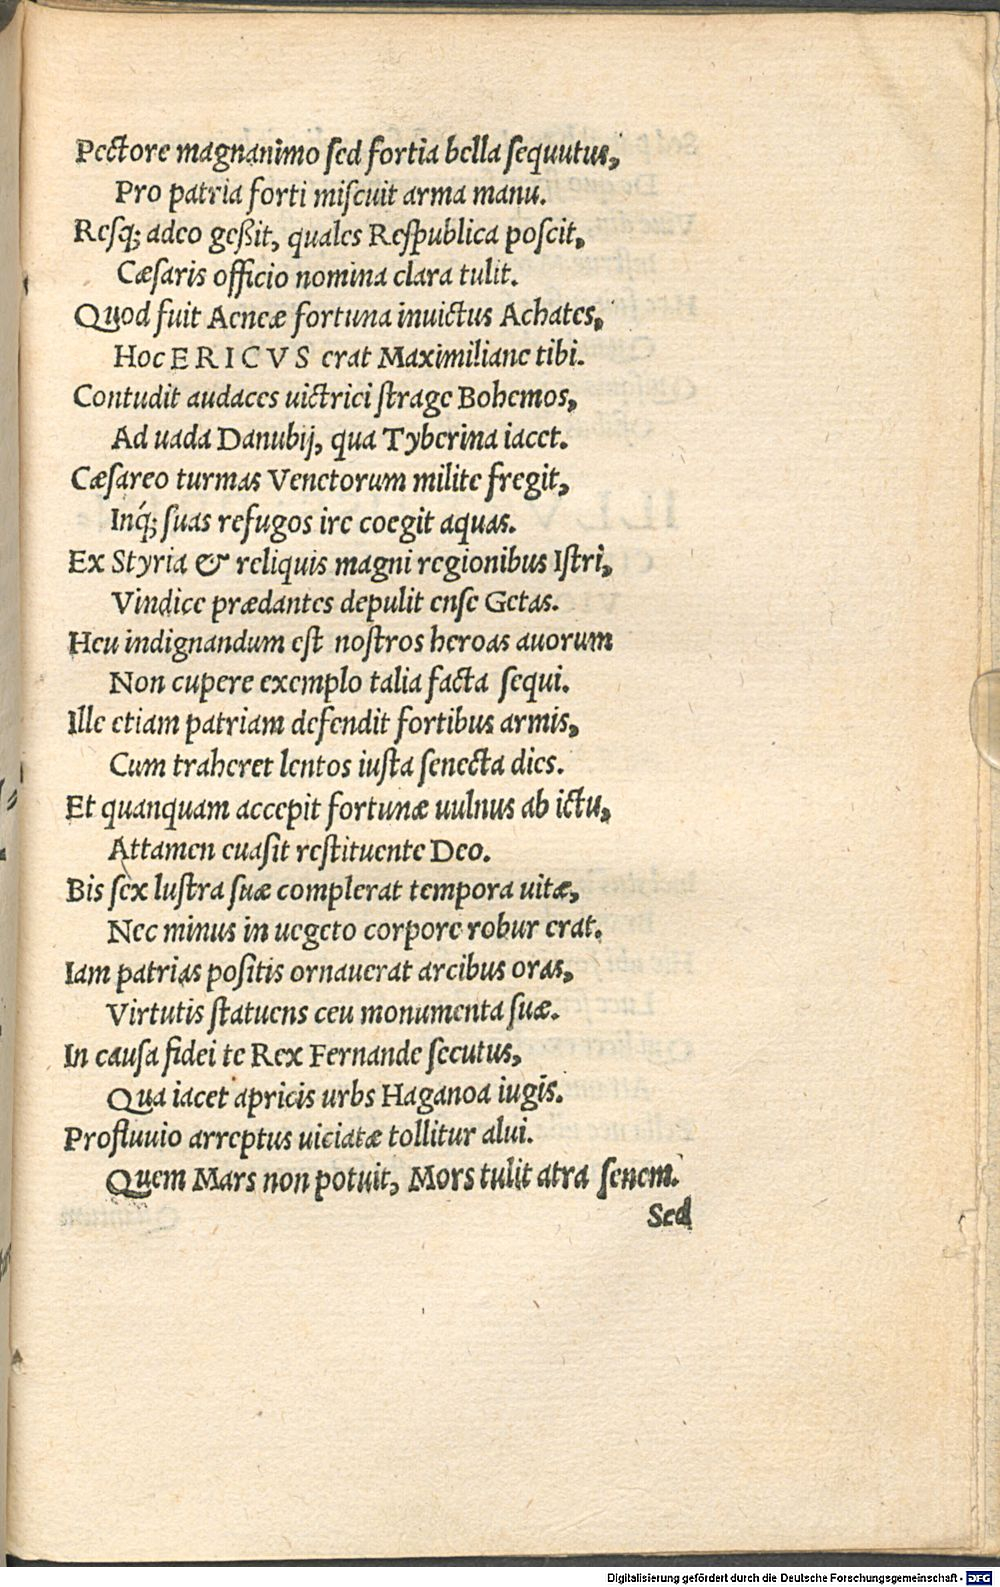 Pectore magnanimo sed fortia bella sequutus,
Pro patria forti miscuit arma manu.
Resq; adeo geßit, quales Respublica poscit,
Cæsaris officio nomina clara tulit.
Quod fuit Aeneæ fortuna inuictus Achates,
Hoc ERICVS erat Maximiliane tibi.
Contudit audaces uictrici strage Bohemos,
Ad uada Danubij, qua Tyberina iacet.
Cæsareo turmas Venetorum milite fregit,
Inq́; suas refugos ire coegit aquas.
Ex Styria & reliquis magni regionibus Istri,
Vindice prædantes depulit ense Getas.
Heu indignandum est nostros heroas auorum
Non cupere exemplo talia facta sequi.
Ille etiam patriam defendit fortibus armis,
Cum traheret lentos iusta senecta dies.
Et quanquam accepit fortunæ uulnus ab ictu,
Attamen euasit restituente Deo.
Bis sex lustra suæ complerat tempora uitæ,
Nec minus in uegeto corpore robur erat.
Iam patrias positis ornauerat arcibus oras,
Virtutis statuens ceu monumenta suæ.
In causa fidei te Rex Fernande secutus,
Qua iacet apricis urbs Haganoa iugis.
Profluuio arreptus uiciatæ tollitur alui.
Quem Mars non potuit, Mors tulit atra senem.
Sed
Digitalisierung gefördert durch die Deutsche Forschungsgemeinschaft - DFG